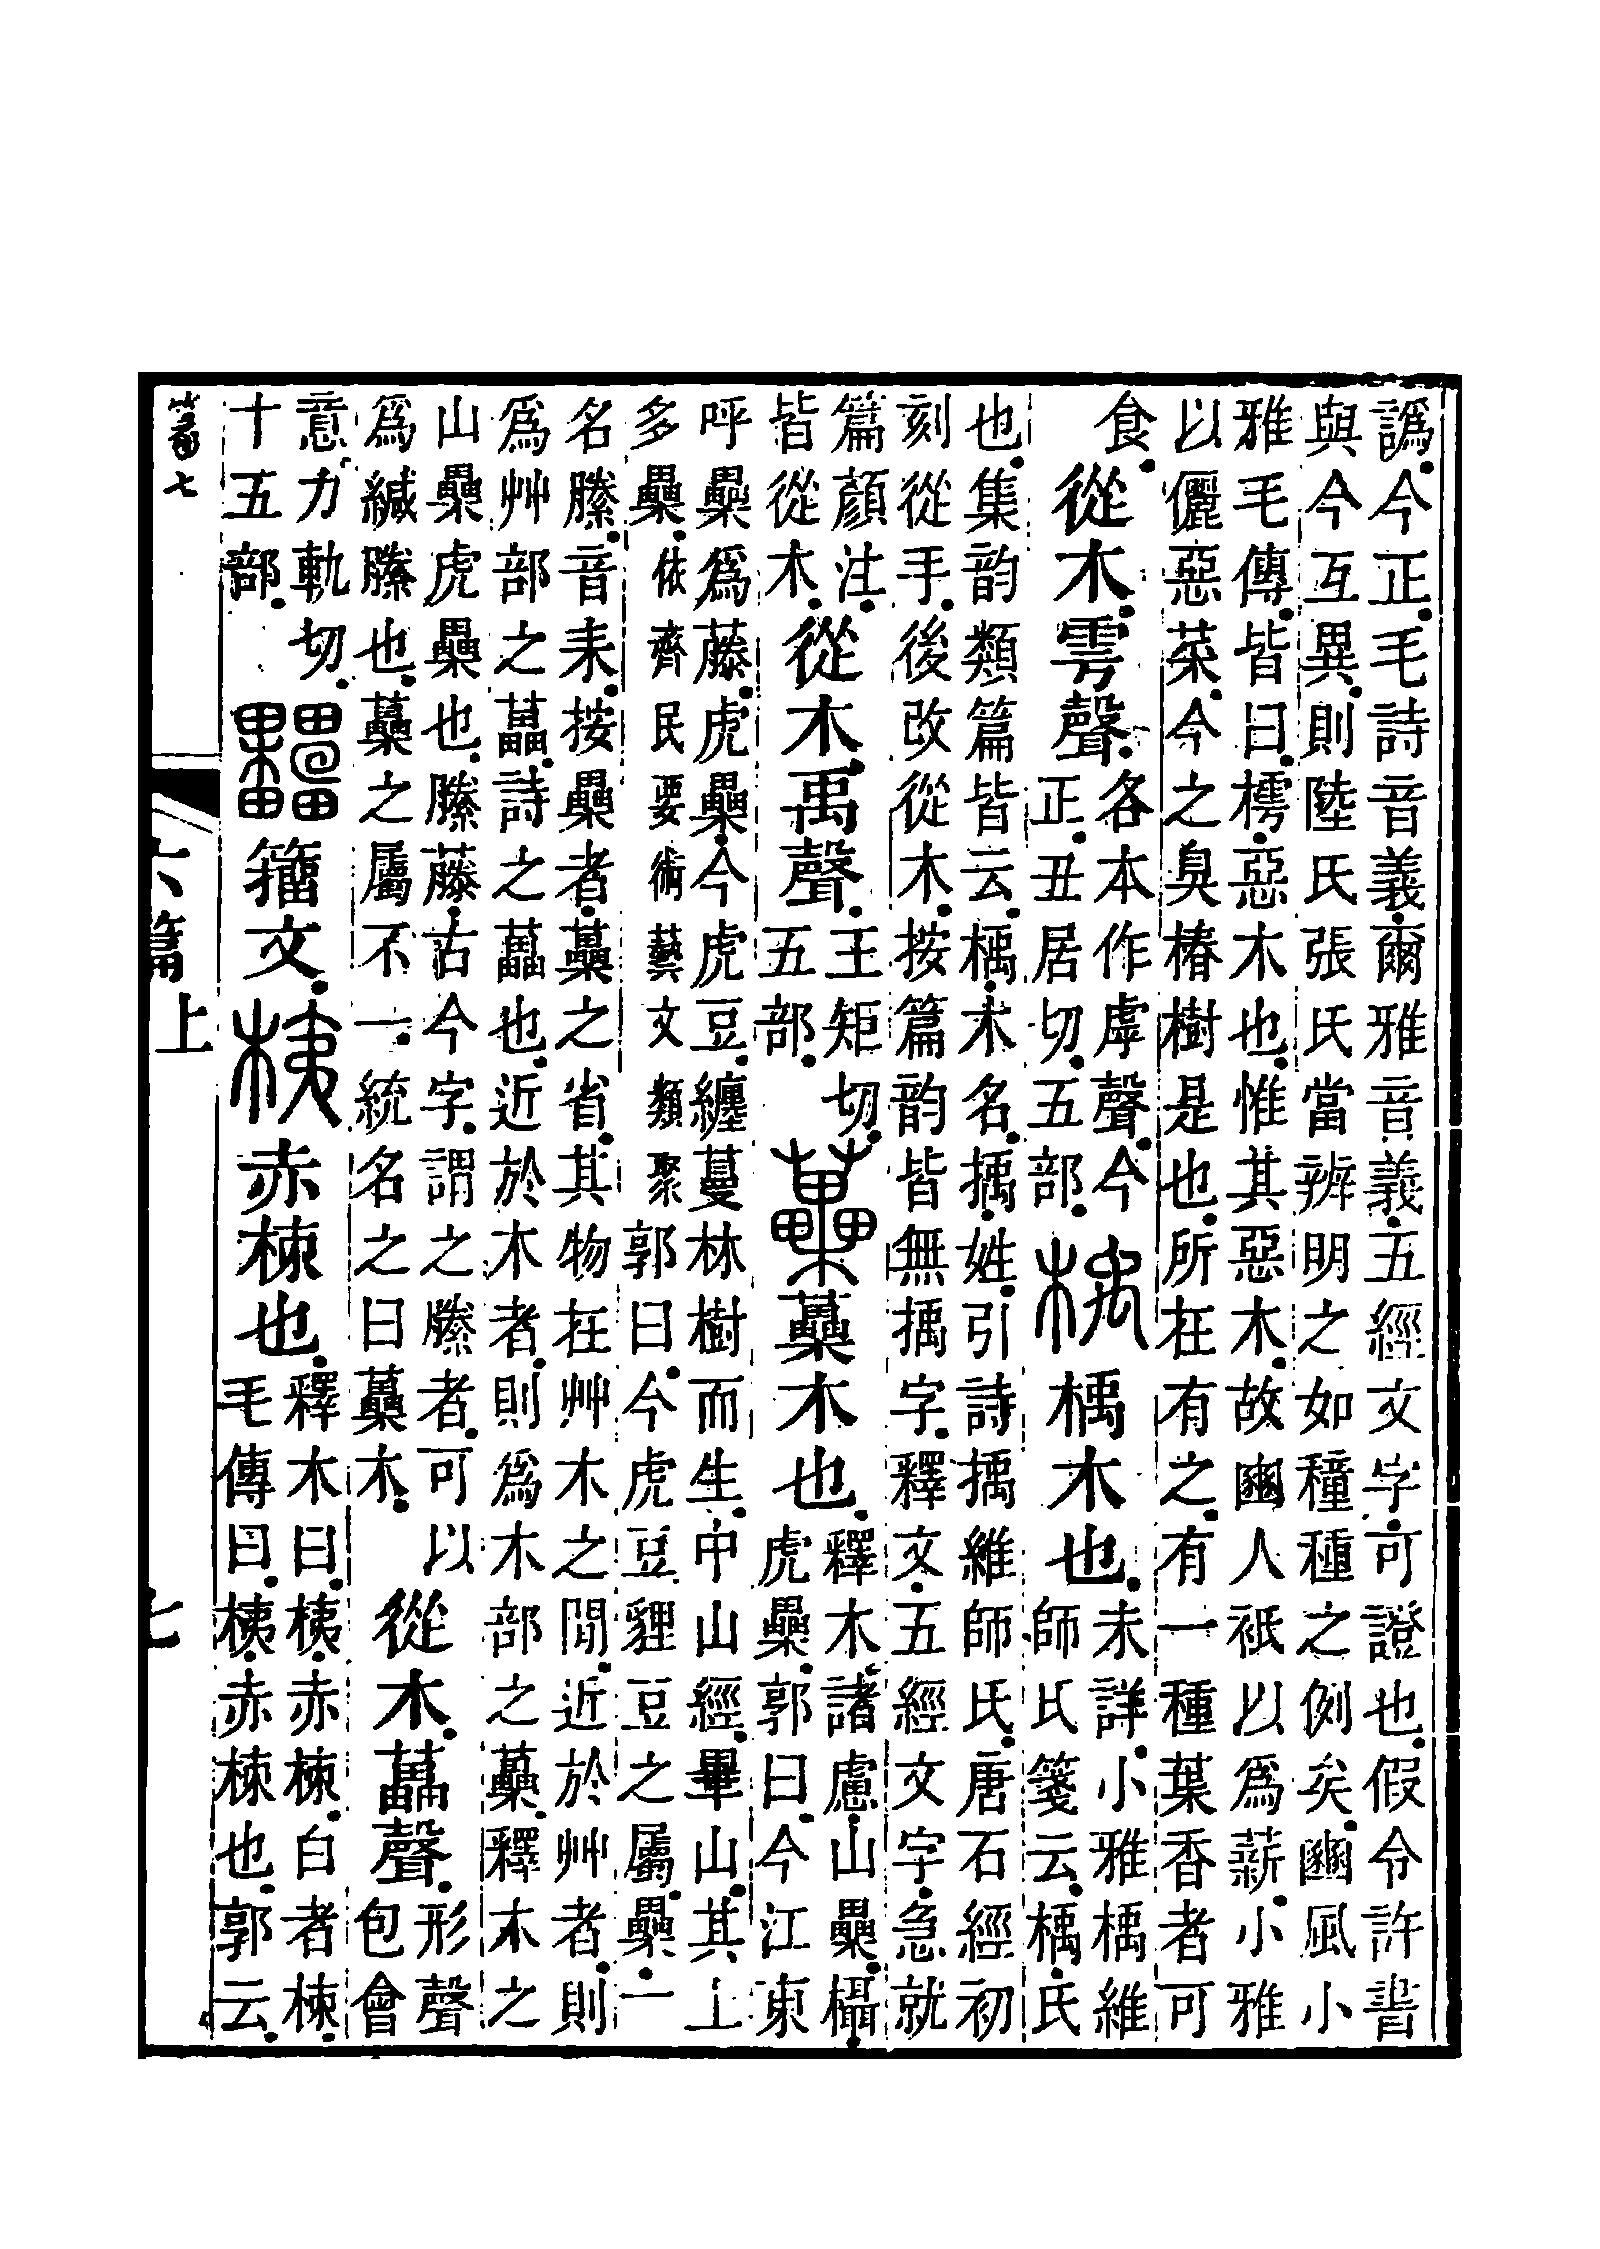 譌今正毛詩音義爾雅音義五經文字可證也假令許書
與今互異則陸氏張氏當辨明之如穜種之例矣豳風小
雅毛傳皆曰樗惡木也惟其惡木故豳人衹以爲薪小雅
以儷惡菜今之臭椿樹是也所在有之有一種葉香者可
食從木雩聲各本作虖聲今正丑居切五部楀楀木也未詳小雅楀維師氏箋云楀氏
也集韵類篇皆云楀木名姓引詩維師氏唐石經初
刻從手後改從木按篇韵皆無字釋文五經文字急就
篇顏注皆從木從木禹聲王矩切五部蘽蘽木也釋木諸慮山櫐欇虎櫐郭曰今江東
呼櫐爲藤虎櫐今虎豆纏蔓林樹而生中山經畢山其上
多櫐依齊民要術藝文類聚郭曰今虎豆貍豆之屬櫐一
名縢音耒按櫐者蘽之省其物在艸木之閒近於艸者則
爲艸部之藟詩之藟也近於木者則爲木部之蘽釋木之
山櫐虎櫐也縢藤古今字謂之縢者可以
爲緘縢也蘽之屬不一統名之曰蘽木從木藟聲形聲包會
意力軌切十五部籒文桋赤栜也釋木曰桋赤栜白者栜
毛傳曰桋赤栜也郭云
六篇上
七